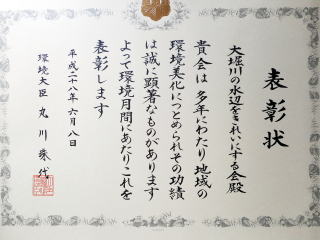 表彰状
大堀川の水辺をきれいにする会殿
貴会は多年にわたり地域の
環境美化につとめられその功績
は誠に顕著なものがあります
よって環境月間にあたりこれを
表彰します
平成二十八年六月八日
環境大臣 丸川珠代